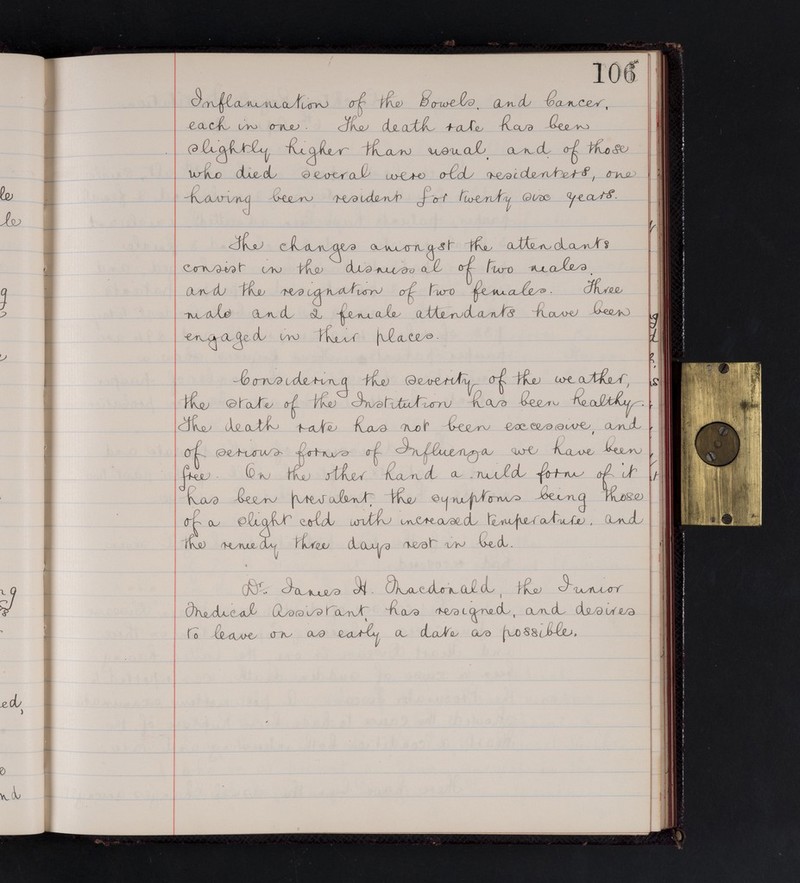 106
Inflammation of the Bowels, and Cancer,
each in one. The death rate has been
slightly higher than usual, and of those
who died several were old residenters, one
having been resident for twenty six years.
The changes amongst the attendants
consist in the dismissal of two males,
and the resignation of two females. Three
male and 2 female attendants have been
engaged in their places.
Considering the severity of the weather,
the state of the Institution has been healthy.
The death rate has not been excessive, and
of serious forms of Influenza we have been
free. On the other hand a mild form of it
has been prevalent, the symptoms being those
of a slight cold with increased temperature, and
the remedy three days rest in bed.
Dr. James H. Macdonald, the Junior
Medical Assistant, has resigned, and desires
to leave on as early a date as possible.